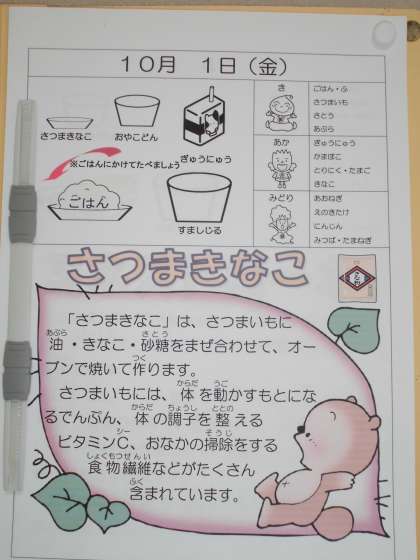 10月 1日(金)
さつまきなこ
おやこどん
ぎゅうにゅう
※ごはんにかけてたべましょう
ごはん
すましじる
き
ごはん・ふ
さつまいも
さとう
あぶら
あか
ぎゅうにゅう
かまぼこ
とりにく・たまご
きなこ
みどり
あおねぎ
えのきたけ
にんじん
みつば・たまねぎ
さつまきなこ
「さつまきなこ」は、さつまいもに
あぶら さとう
油・きなこ・砂糖をまぜ合わせて、オー
つく
ブンで焼いて作ります。
からだ うご
さつまいもには、体を動かすもとにな
からだ ちょうし ととの
るでんぷん、体の調子を整える
シー そうじ
ビタミンC、おなかの掃除をする
しょくもつせんい
食物繊維などがたくさん
ふく
含まれています。